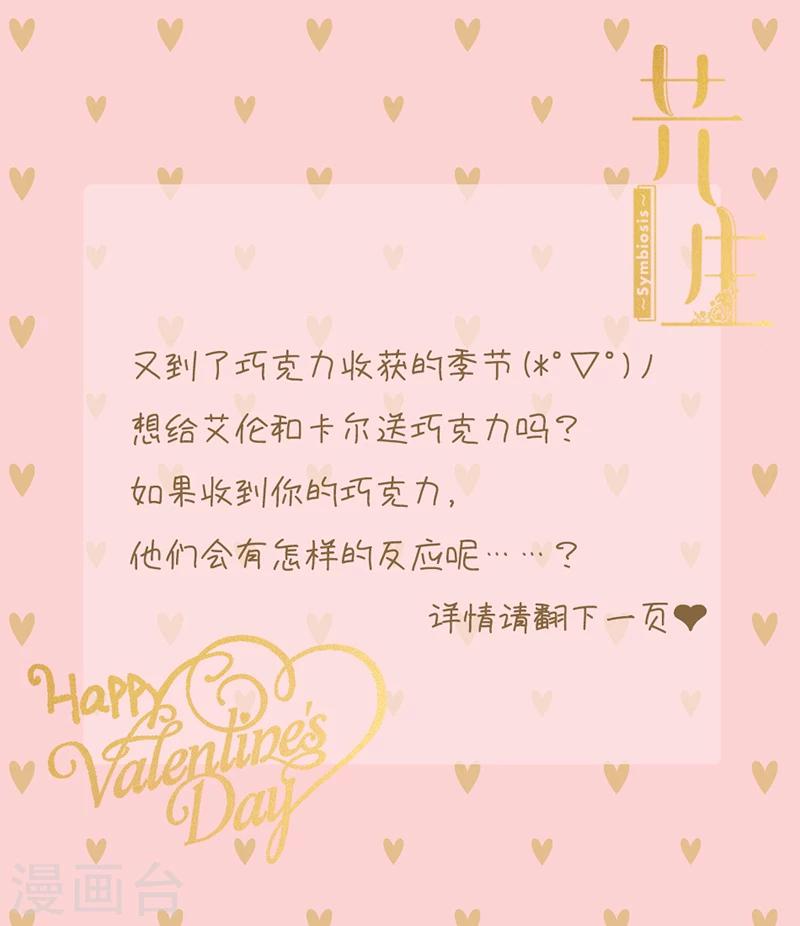 共生
~Symbiosis~
又到了巧克力收获的季节(*°▽°)ﾉ
想给艾伦和卡尔送巧克力吗?
如果收到你的巧克力,
他们会有怎样的反应呢……?
详情请翻下一页❤
Happy
Valentine's
Day
漫画台